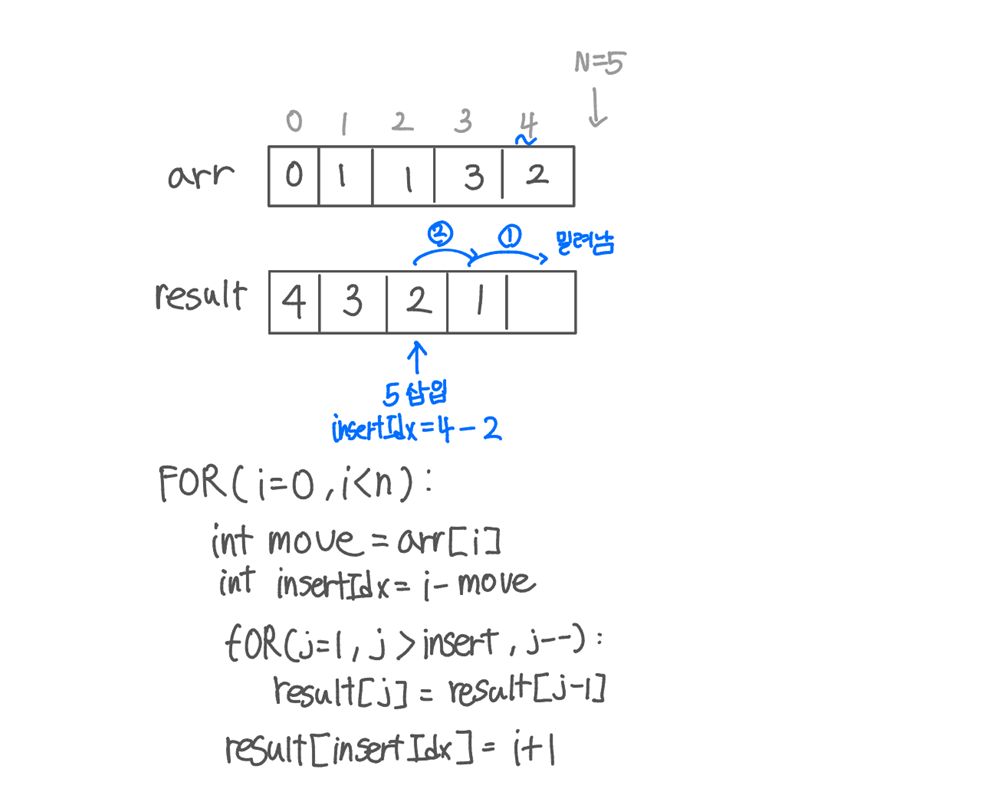 N=5
↓
0 1 2 3 4
arr 0 1 1 3 2
② ① 밀려남
result 4 3 2 1
↑
5 삽입
insertIdx=4-2
FOR(i=0, i<n):
int move = arr[i]
int insertIdx = i - move
fOR(j=1, j > insert, j--):
result[j] = result[j-1]
result[insertIdx] = i+1